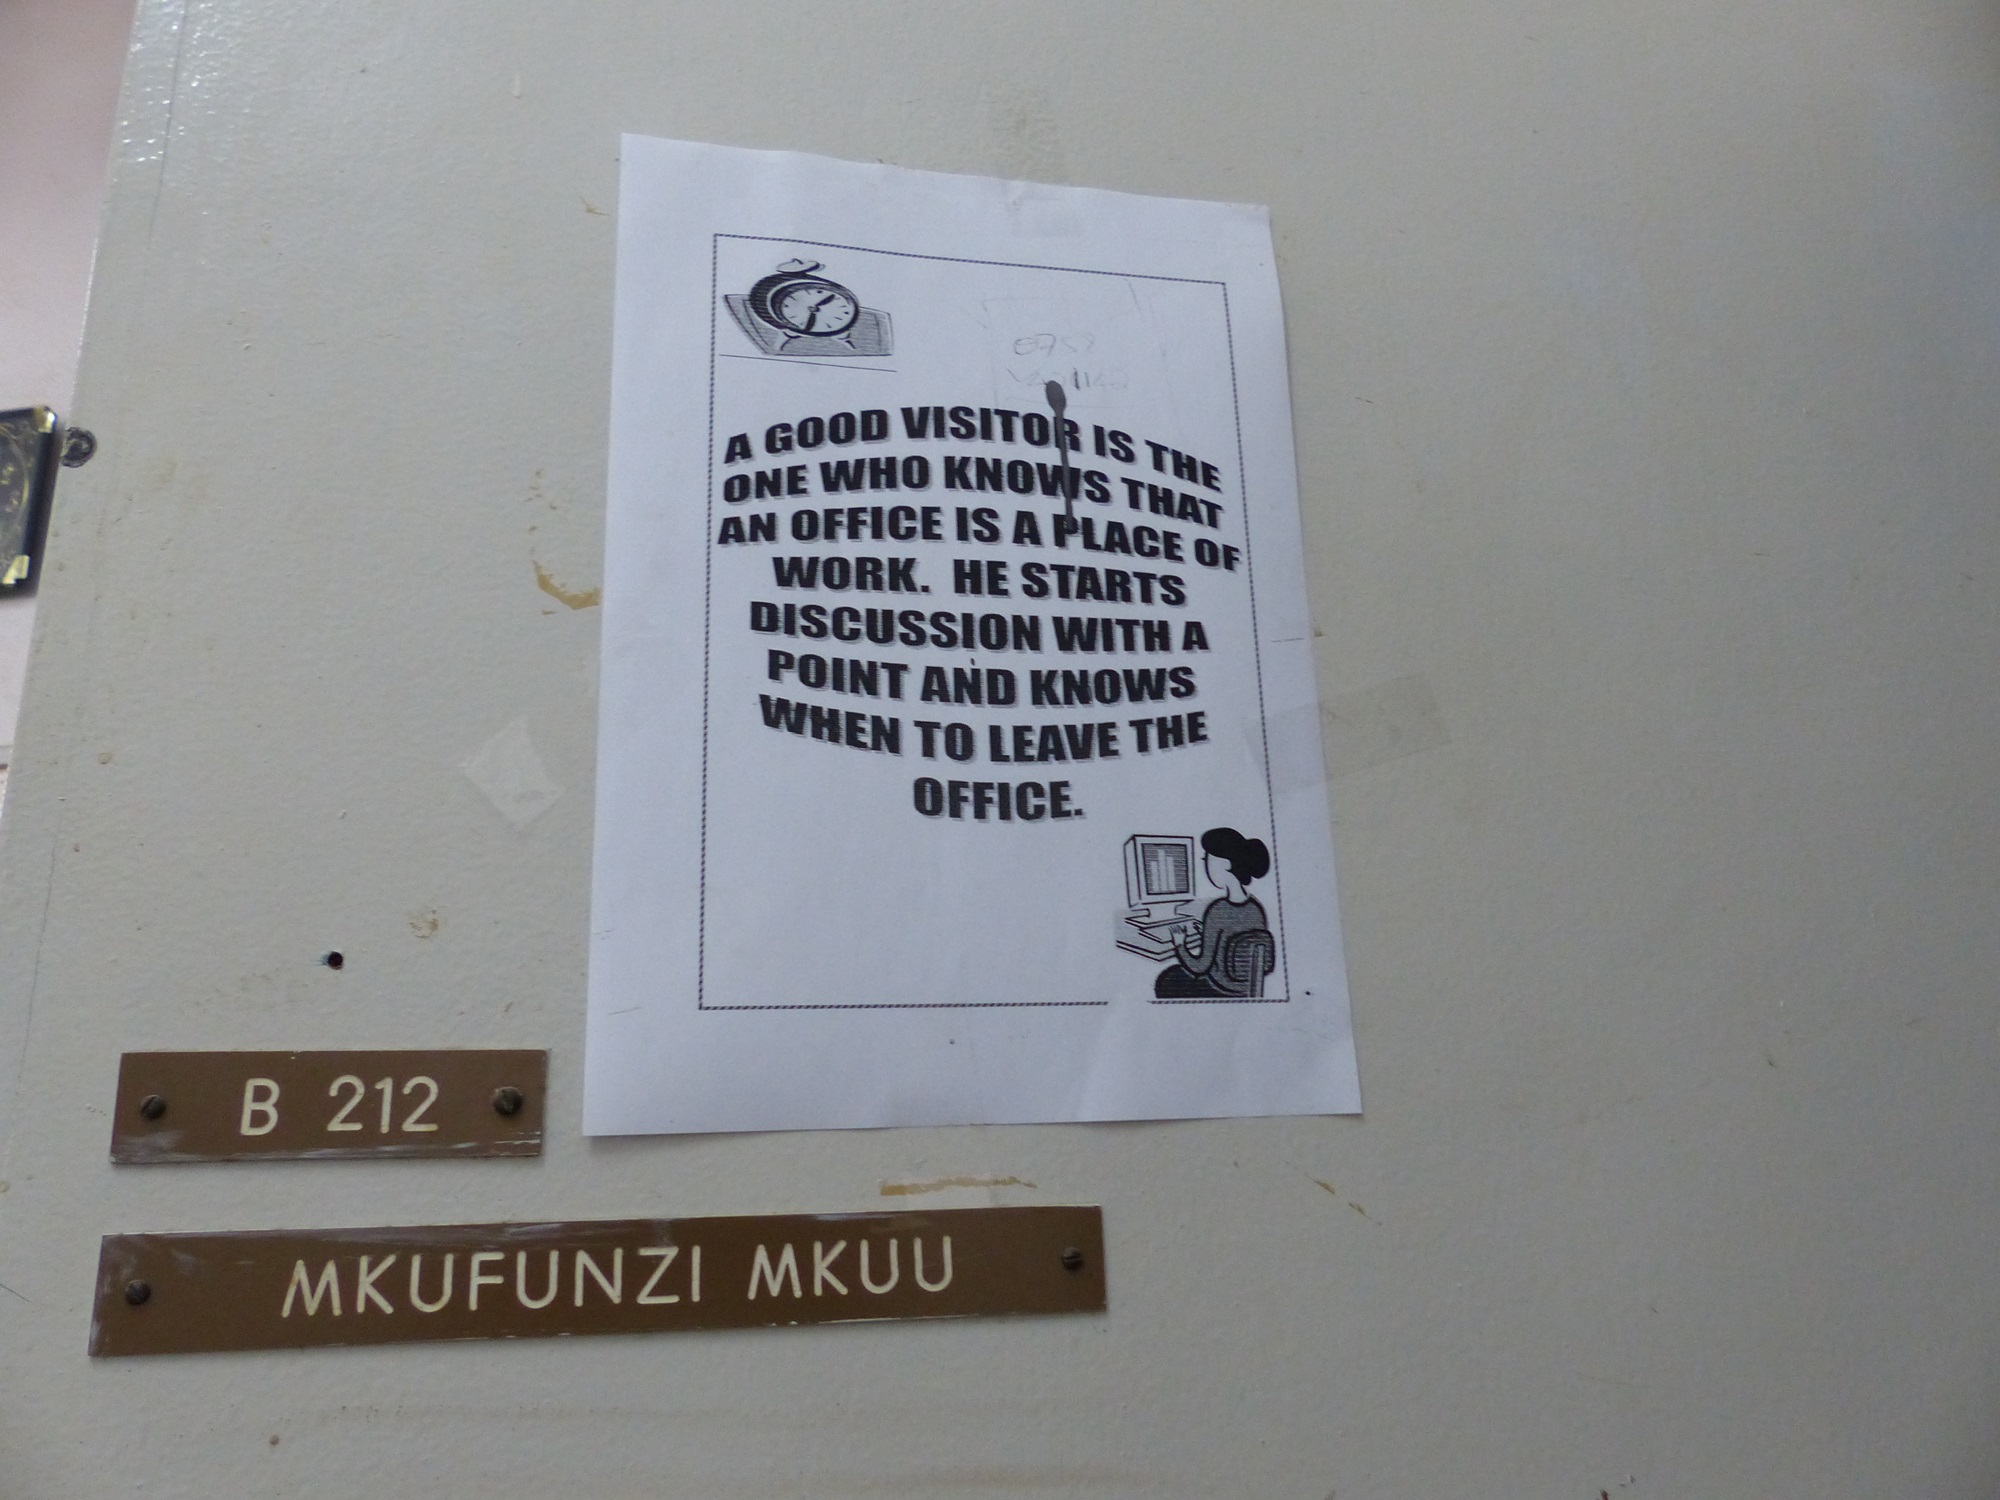 A GOOD VISITOR IS THE
ONE WHO KNOWS THAT
AN OFFICE IS A PLACE OF
WORK. HE STARTS
DISCUSSION WITH A
POINT AND KNOWS
WHEN TO LEAVE THE
OFFICE.
B 212
MKUFUNZI MKUU